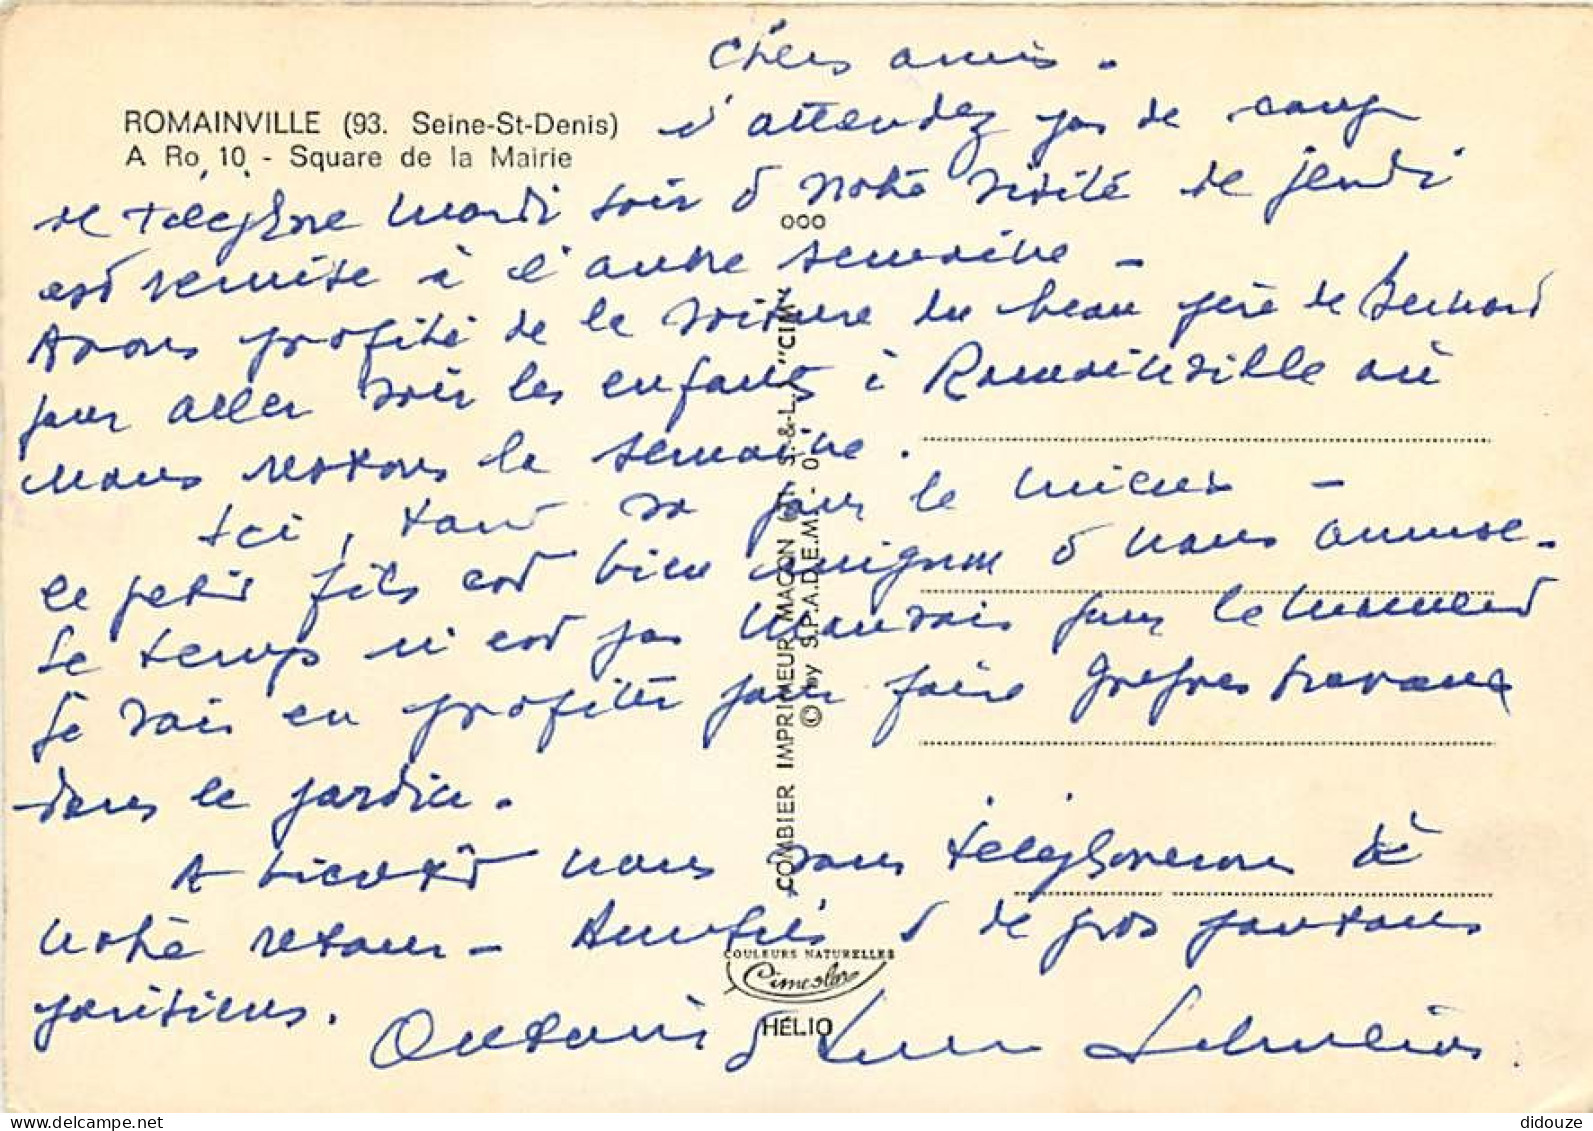 Chers amis.
ROMAINVILLE (93. Seine-St-Denis)
A Ro, 10 - Square de la Mairie
n'attendez pas de coup
de telephone Mardi soir & notre visite de jeudi
est remise à l'autre semaine -
Avons profité de la voiture du beau père de Bernard
pour aller voir les enfants à Romainville où
nous restons la semaine.
Ici, tout va pour le mieux -
le petit fils est bien mignon & nous amuse.
Le temps n'est pas mauvais pour le moment
Je vais en profiter pour faire travaux
dans le jardin.
A bientôt nous vous telephonerons dè
notre retour - Amitiés & de gros
parisiens.
&
OOO
COMBIER IMPRIMEUR MACON S.-&-L. "CIM"
© by S.P.A.D.E.M.
COULEURS NATURELLES
Cimeslor
HÉLIO
delcampe.net
didouze